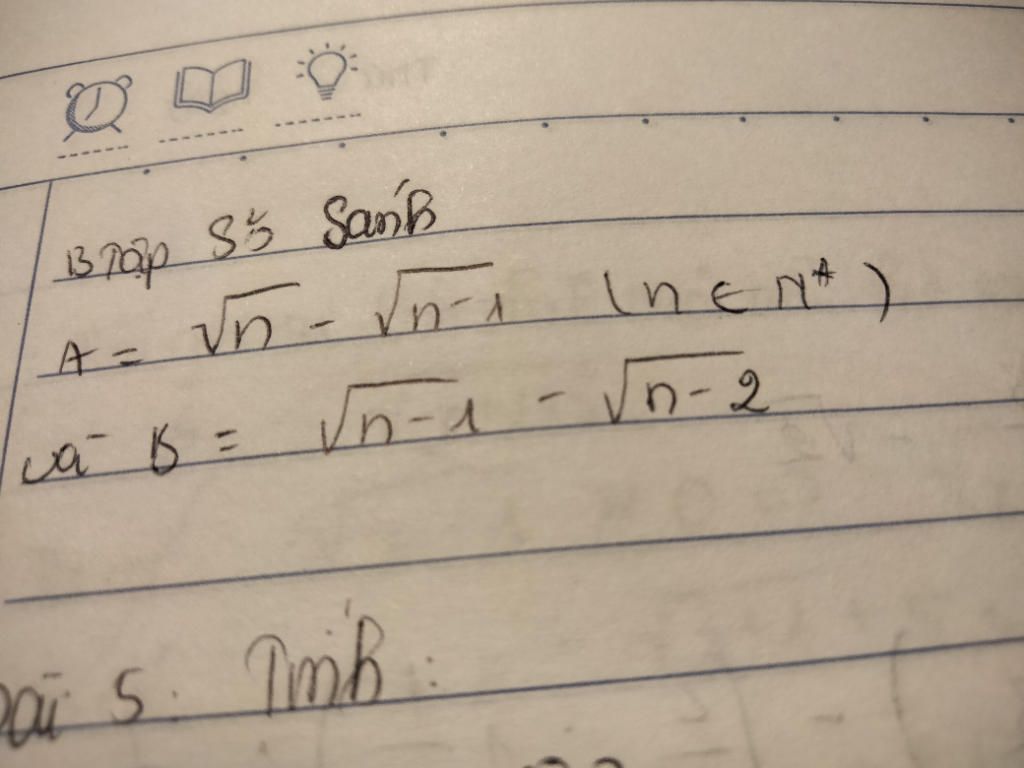 B Tập Số Sánh
A = √n - √n-1 (n ∈ N*)
và B = √n-1 - √n-2
Bài 5: Tính: